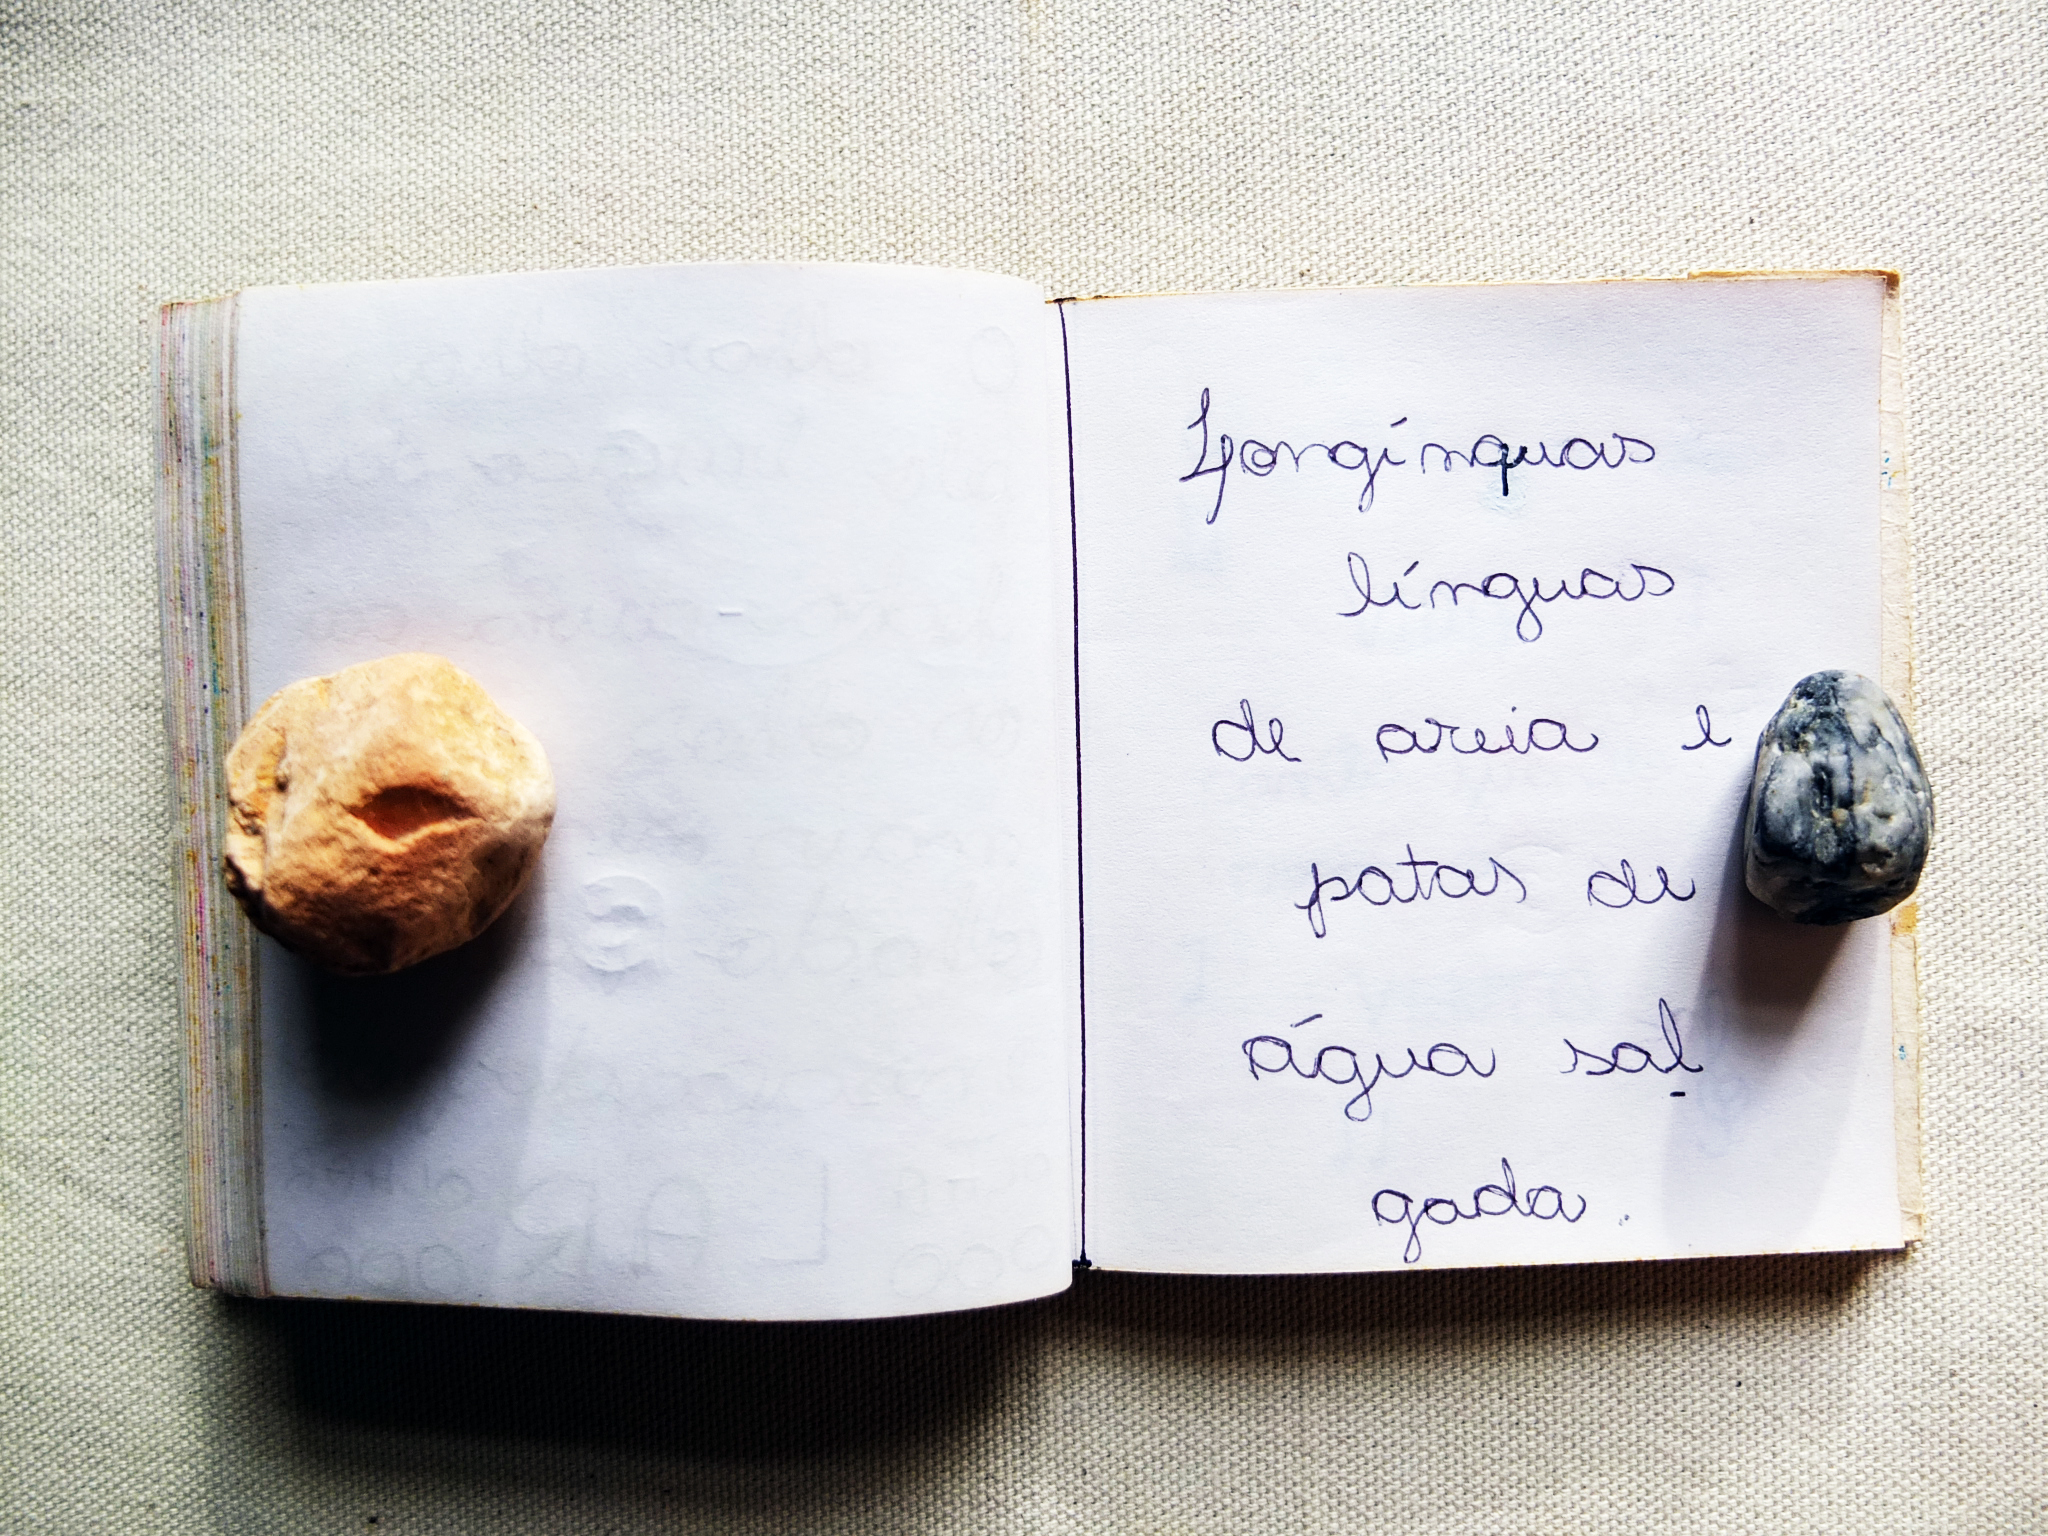 Longínquas
línguas
de areia e
patas de
água sal
gada.